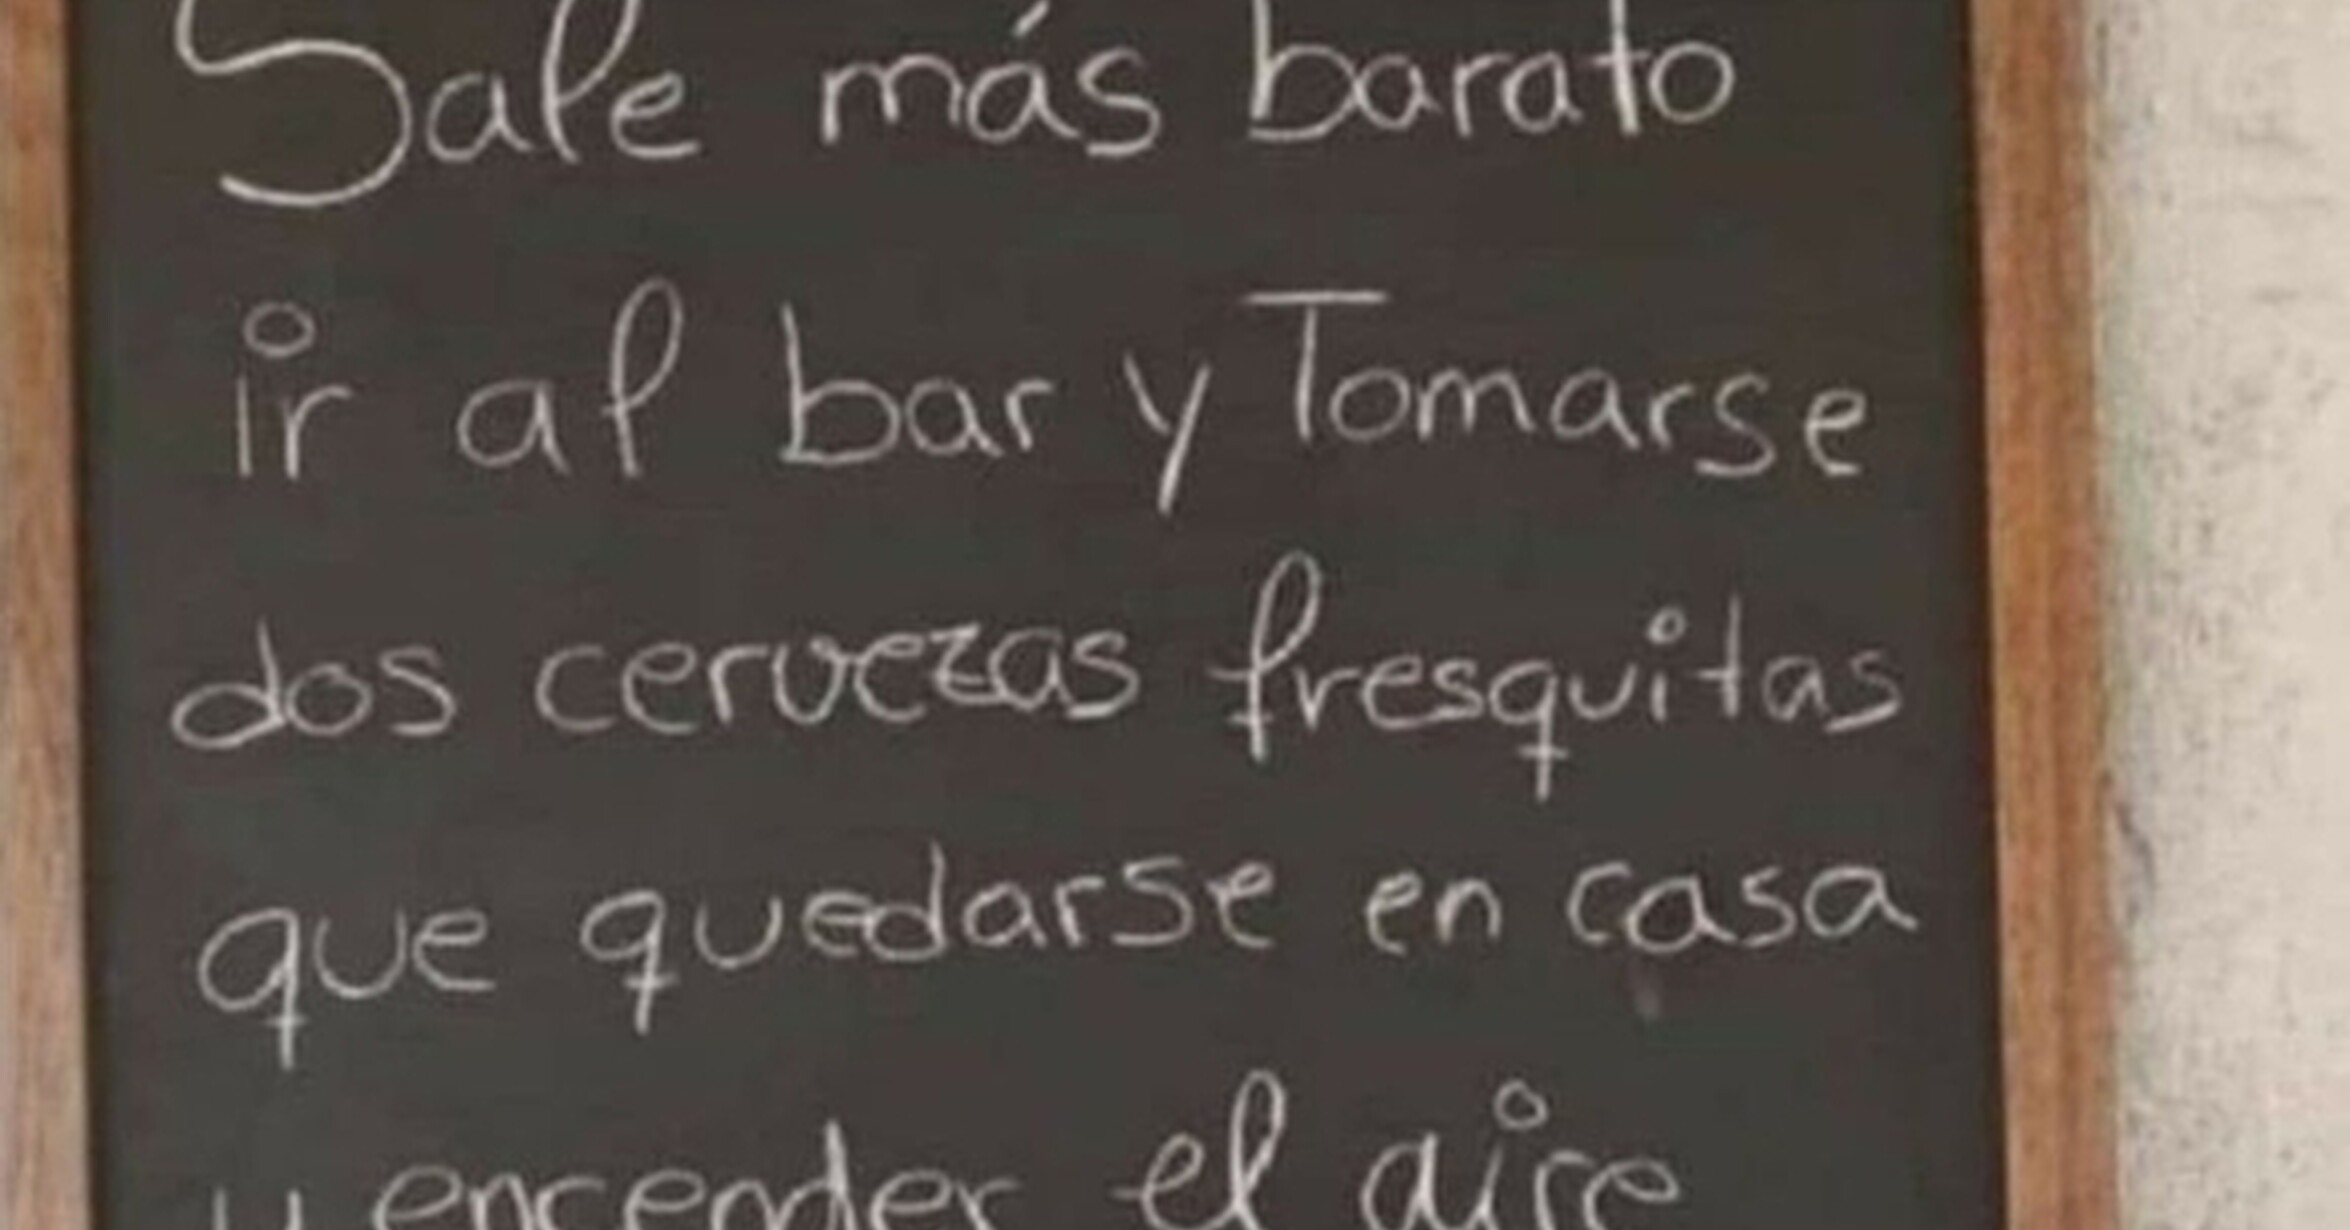 Sale más barato
ir al bar y Tomarse
dos cervezas fresquitas
que quedarse en casa
y encender el aire